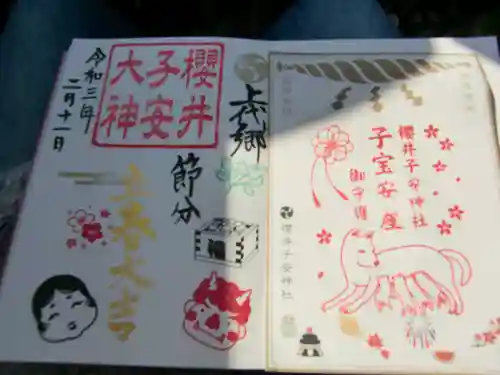 上代郷
櫻井
子安
大神
節分
立春大吉
令和三年
二月十一日
櫻井子安神社
子宝安産
御守護
櫻井子安神社